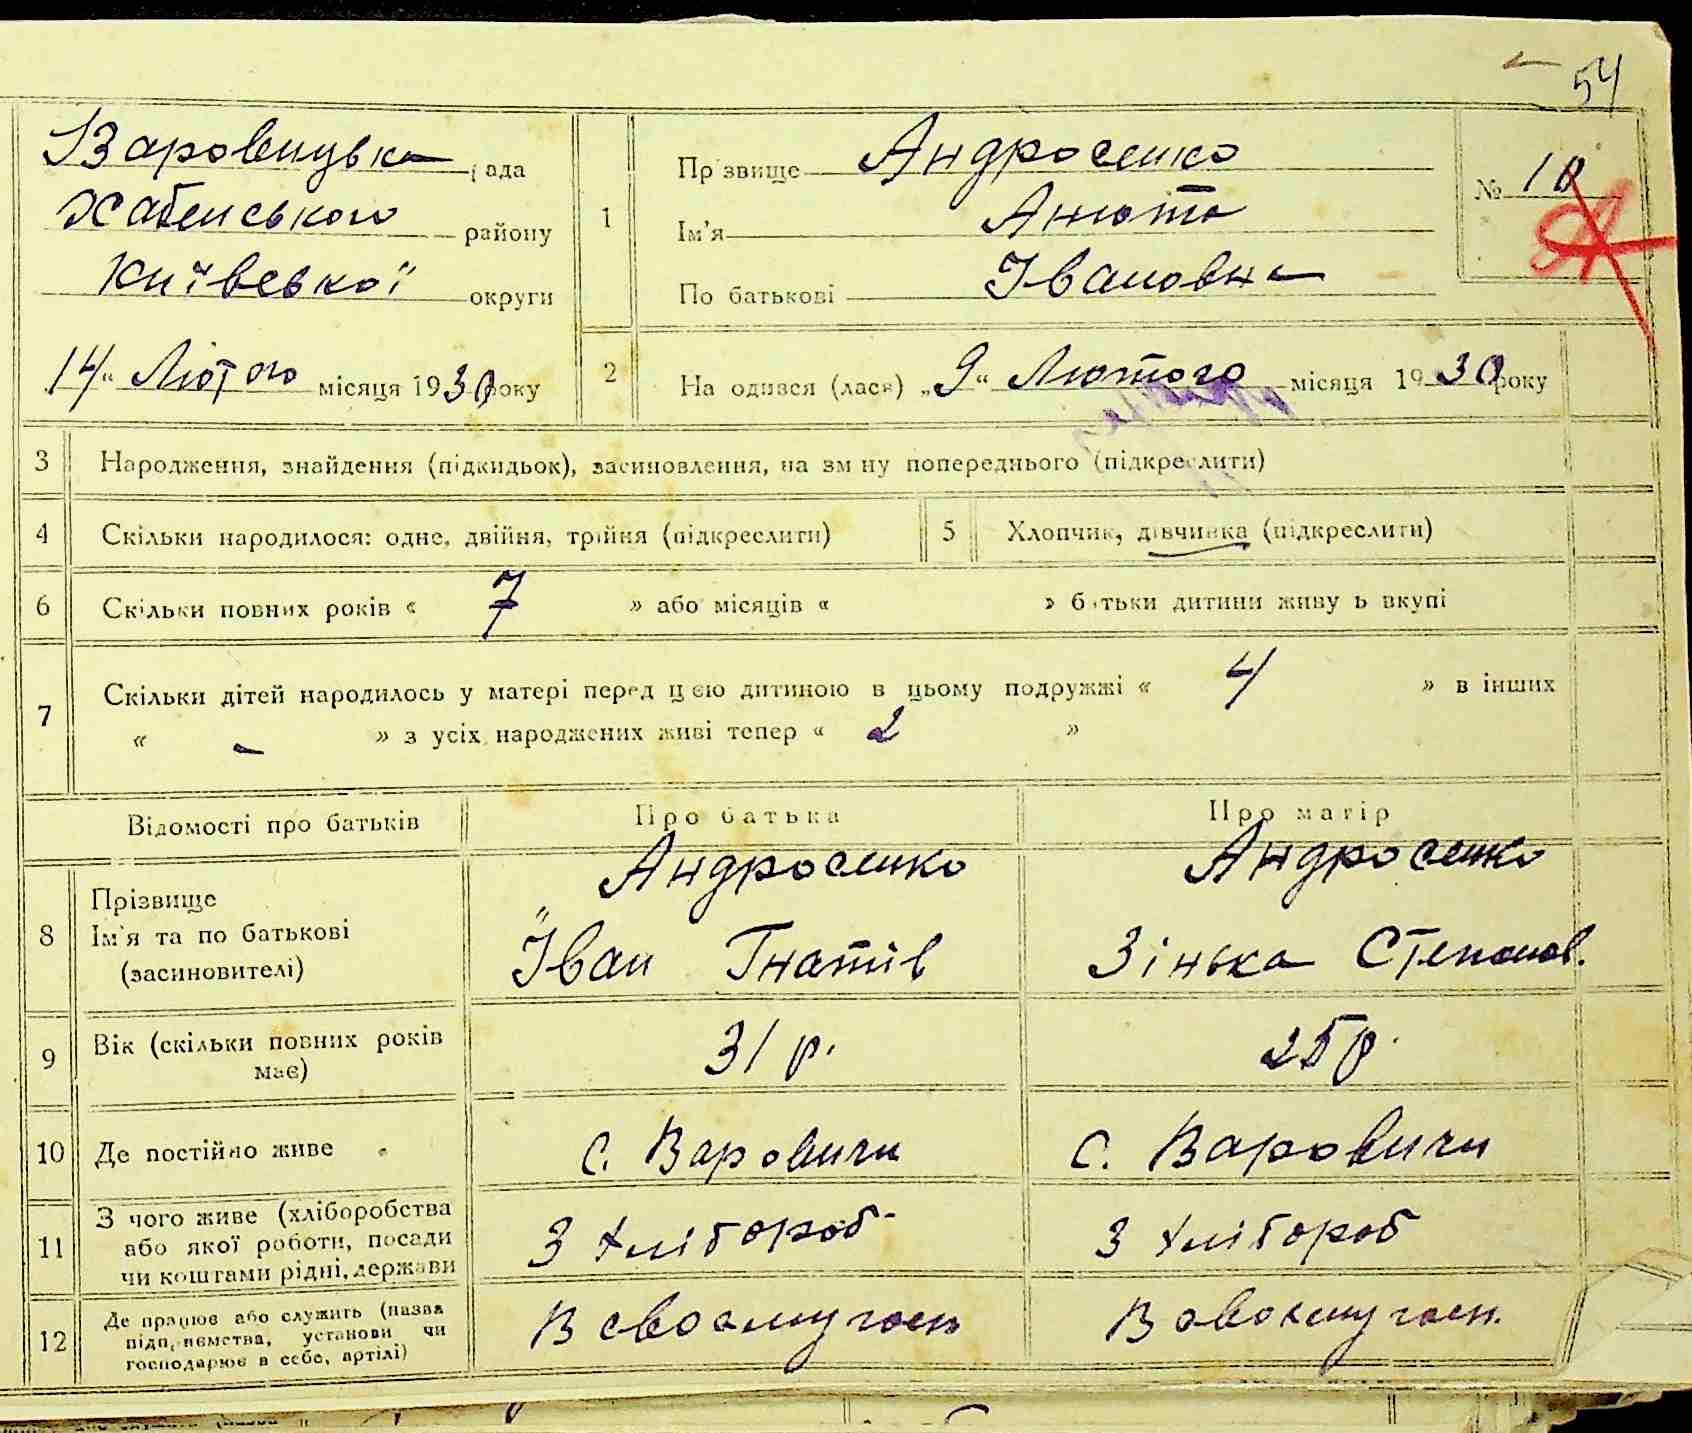 54
Варовицька рада
Хабенського району
Київської округи
14 " Лютого місяця 1930 року
1
Прізвище Андросенко
Ім'я Анюта
По батькові Івановна
№ 10
2 На одився (лася) „9" Лютого місяця 1930 року
3 Народження, знайдення (підкидьок), засиновлення, на зм ну попереднього (підкреслити)
4 Скільки народилося: одне, двійня, трійня (підкреслити)
5 Хлопчик, дівчинка (підкреслити)
6 Скільки повних років « 7 » або місяців « » батьки дитини живу ь вкупі
7 Скільки дітей народилось у матері перед цією дитиною в цьому подружжі « 4 » в інших
« - » з усіх народжених живі тепер « 2 »
Відомості про батьків Про батька Про матір
8 Прізвище
Ім'я та по батькові
(засиновителі)
Андросенко
Іван Гнатів
Андросенко
Зінька Степанов.
9 Вік (скільки повних років
має)
31 р.
25 р.
10 Де постійно живе
с. Варовичи
с. Варовичи
11 З чого живе (хліборобства
або якої роботи, посади
чи коштами рідні, держави
З хлібороб-
З хлібороб
12 Де працює або служить (назва
підприємства, установи чи
господарює в себе, артілі)
В своєму госп
В своєму госп.